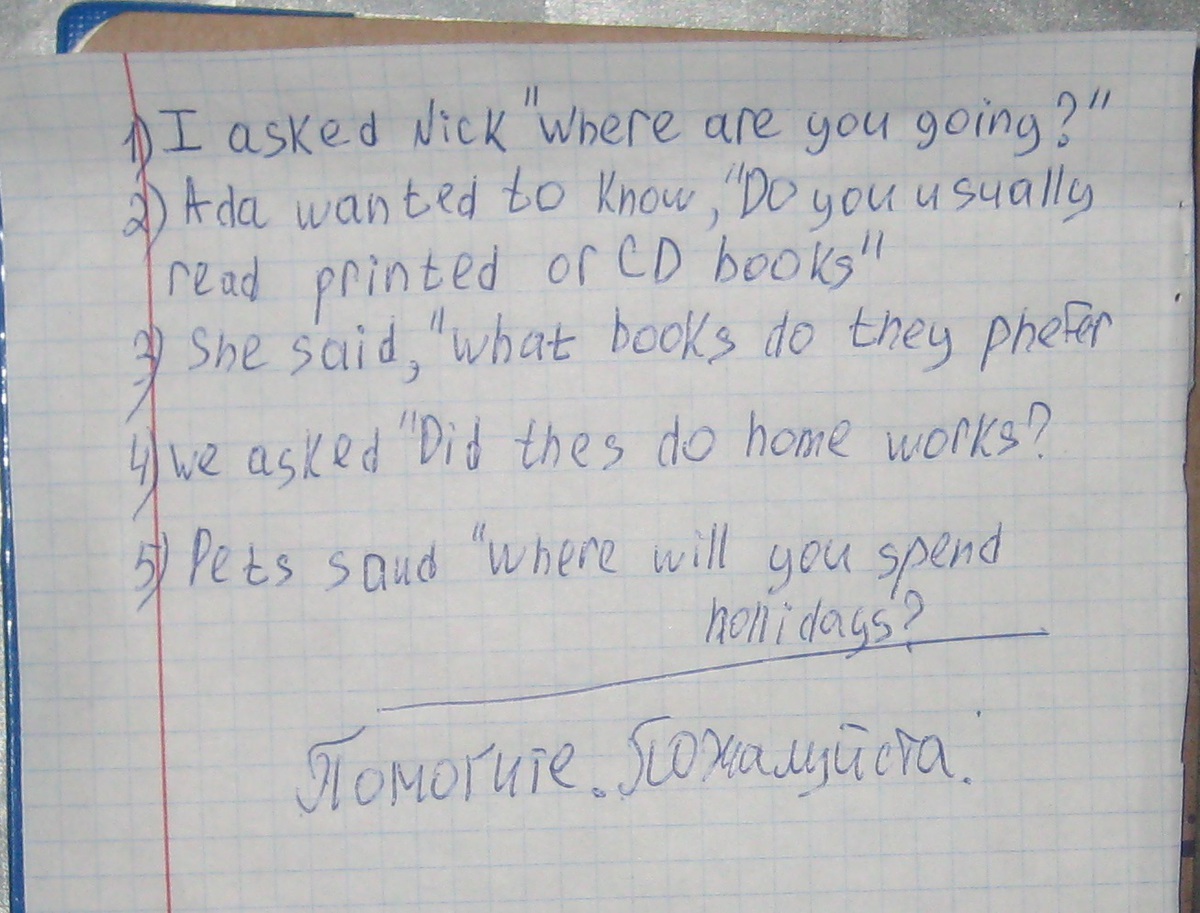 1) I asked Nick "where are you going?"
2) Ada wanted to know, "Do you usually
read printed or CD books"
3) She said, "what books do they phefer
4) we asked "Did thes do home works?
5) Pets saud "where will you spend
hollidays?
Помогите. Пожалуйста.